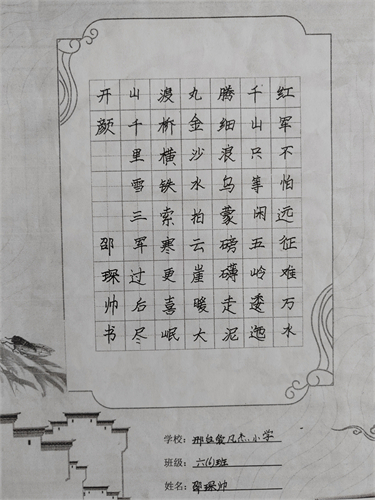 红军不怕远征难万水
千山只等闲五岭逶迤
腾细浪乌蒙磅礴走泥
丸金沙水拍云崖暖大
渡桥横铁索寒更喜岷
山千里雪三军过后尽
开颜 邵琛帅书
学校: 小学
班级: 六(6)班
姓名: 邵琛帅